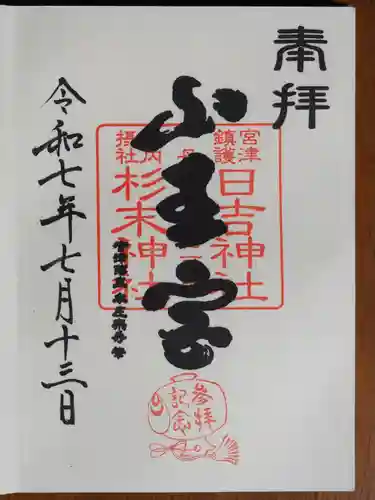 奉拝
山王宮
宮津
鎮護
日吉神社
摂社
杉末神社
令和七年七月十三日
参拝
記念